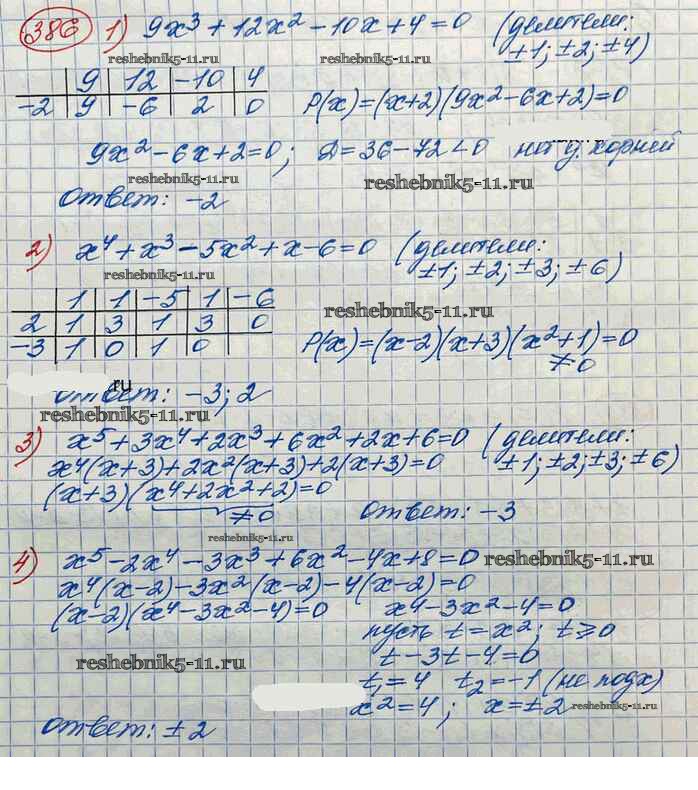 386 1) 9x³ + 12x² - 10x + 4 = 0 (делители:
reshebnik5-11.ru reshebnik5-11.ru ±1; ±2; ±4)
9 12 -10 4
-2 9 -6 2 0 P(x) = (x+2)(9x² - 6x + 2) = 0
9x² - 6x + 2 = 0; D = 36 - 72 < 0 нет д. корней
reshebnik5-11.ru reshebnik5-11.ru
Ответ: -2
2) x⁴ + x³ - 5x² + x - 6 = 0 (делители:
reshebnik5-11.ru ±1; ±2; ±3; ±6)
1 1 -5 1 -6
reshebnik5-11.ru
2 1 3 1 3 0
-3 1 0 1 0 P(x) = (x-2)(x+3)(x²+1) = 0
≠0
.ru
Ответ: -3; 2
reshebnik5-11.ru
3) x⁵ + 3x⁴ + 2x³ + 6x² + 2x + 6 = 0 (делители:
x⁴(x+3) + 2x²(x+3) + 2(x+3) = 0 ±1; ±2; ±3; ±6)
(x+3)(x⁴ + 2x² + 2) = 0
≠0 Ответ: -3
reshebnik5-11.ru
4) x⁵ - 2x⁴ - 3x³ + 6x² - 4x + 8 = 0 reshebnik5-11.ru
x⁴(x-2) - 3x²(x-2) - 4(x-2) = 0
(x-2)(x⁴ - 3x² - 4) = 0 x⁴ - 3x² - 4 = 0
пусть t = x²; t ≥ 0
reshebnik5-11.ru t - 3t - 4 = 0
t₁ = 4 t₂ = -1 (не подх)
x² = 4; x = ±2 reshebnik5-11.ru
Ответ: ±2